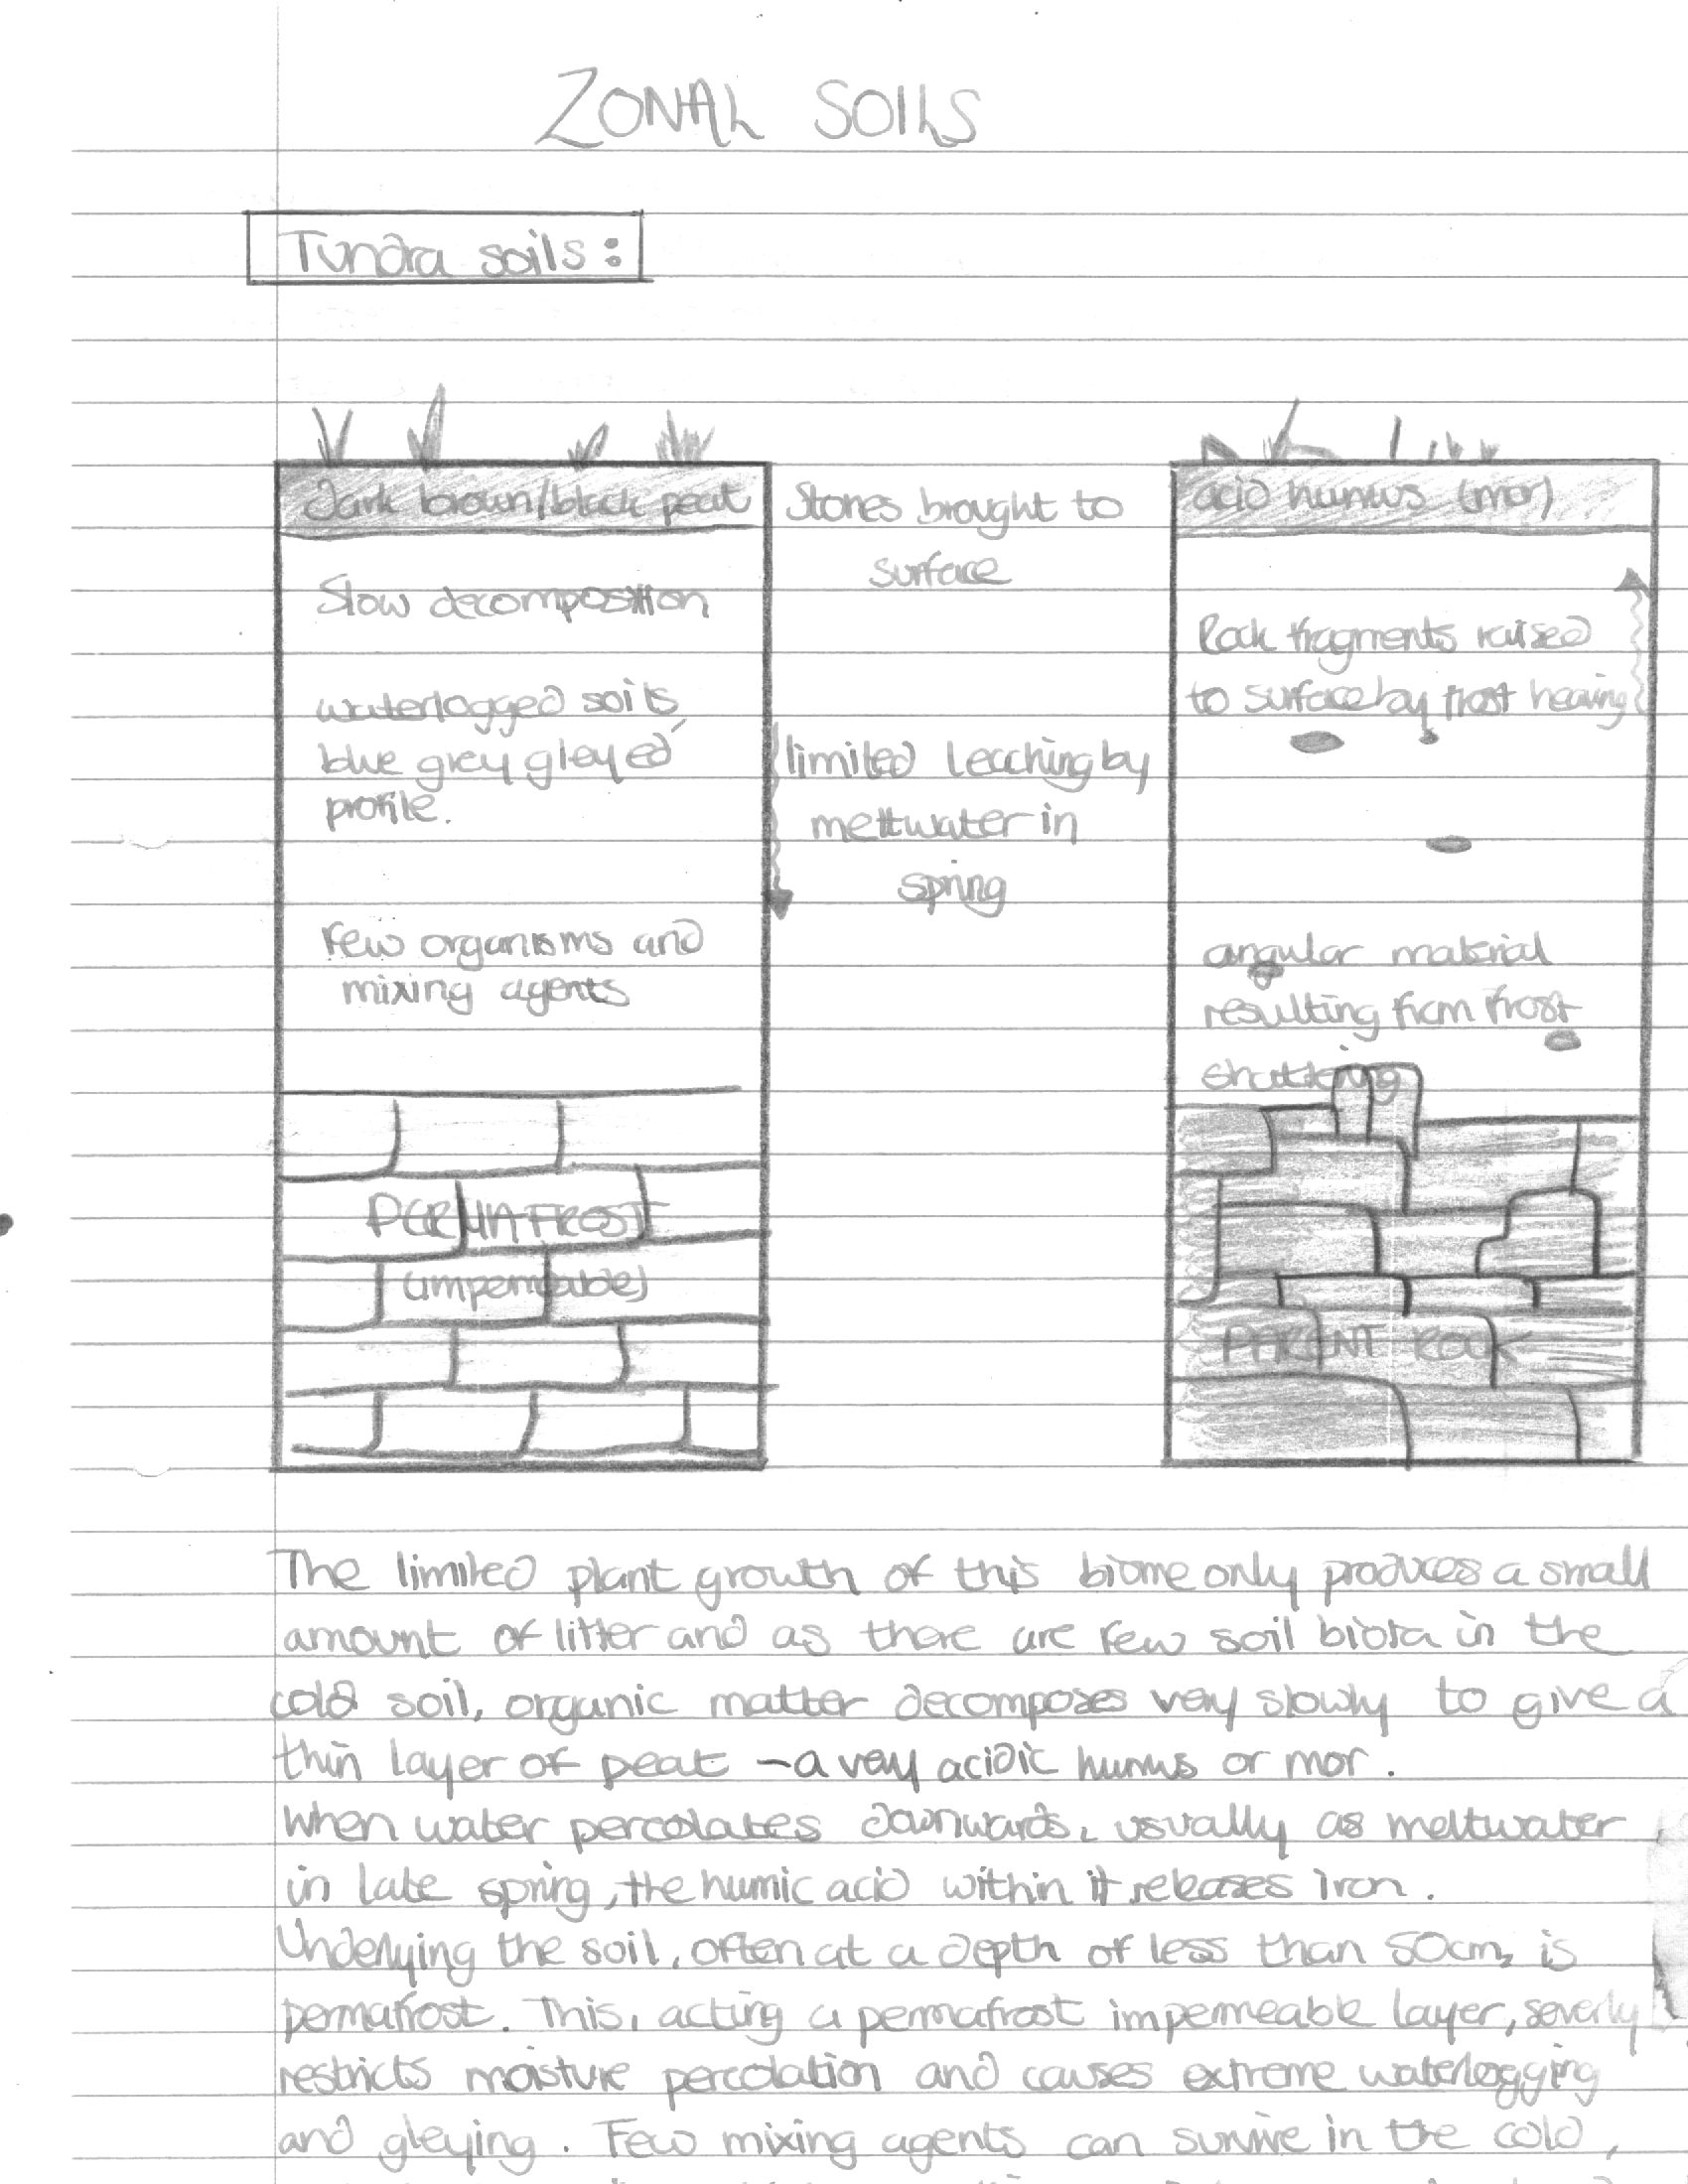 ZONAL SOILS
Tundra soils:
Dark brown/black peat
Slow decomposition
waterlogged soils,
blue grey gleyed
profile.
Few organisms and
mixing agents
PERMAFROST
(impermeable)
Stones brought to
surface
limited leaching by
meltwater in
spring
acid humus (mor)
Rock fragments raised
to surface by frost heaving
angular material
resulting from frost
shattering
PARENT ROCK
The limited plant growth of this biome only produces a small
amount of litter and as there are few soil biota in the
cold soil, organic matter decomposes very slowly to give a
thin layer of peat - a very acidic humus or mor.
When water percolates downwards, usually as meltwater
in late spring, the humic acid within it releases iron.
Underlying the soil, often at a depth of less than 50cm, is
permafrost. This, acting a permafrost impermeable layer, severly
restricts moisture percolation and causes extreme waterlogging
and gleying. Few mixing agents can survive in the cold,